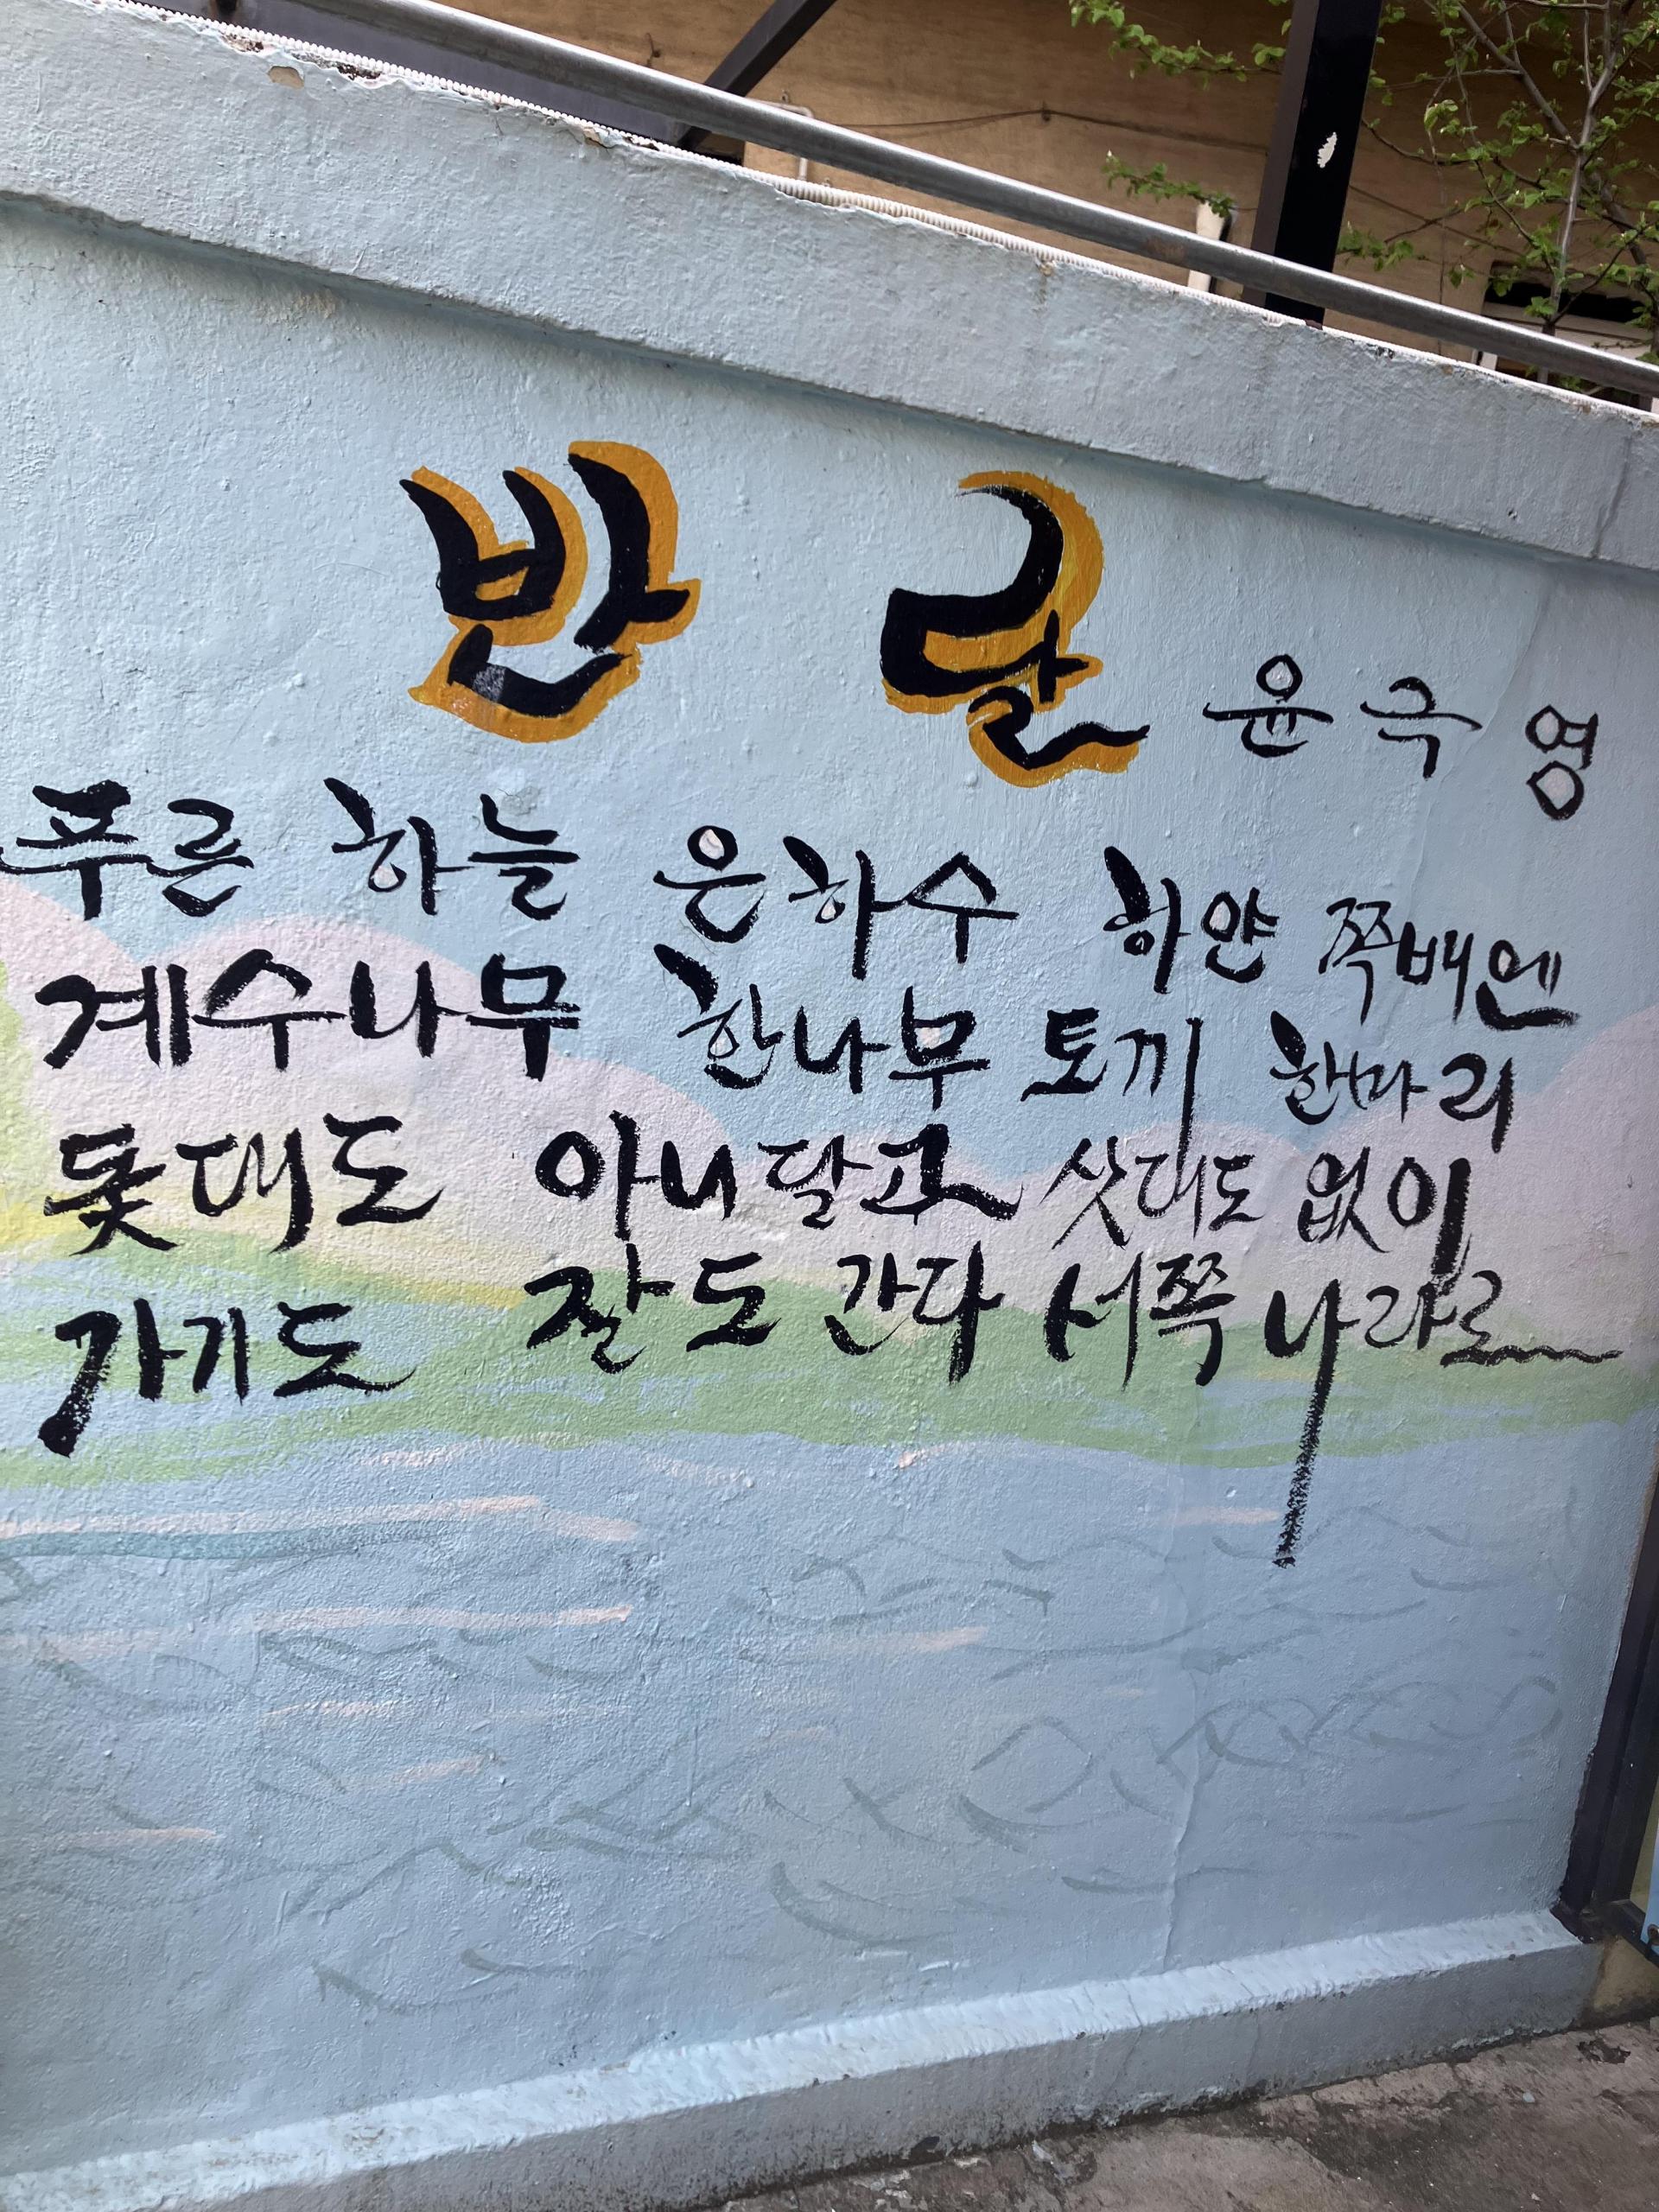 반달 윤극영
푸른 하늘 은하수 하얀 쪽배엔
계수나무 한나무 토끼 한마리
돛대도 아니달고 삿대도 없이
가기도 잘도 간다 서쪽 나라로